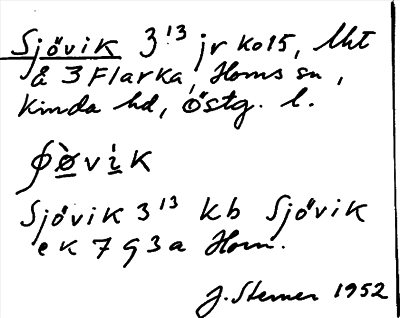 Sjövik 3¹³ jr ko15, lht
å 3 Flarka, Horns sn,
Kinda hd, Östg. l.
vik
Sjövik 3¹³ kb Sjövik
ek 7 93a Horn.
J. Sterner 1952